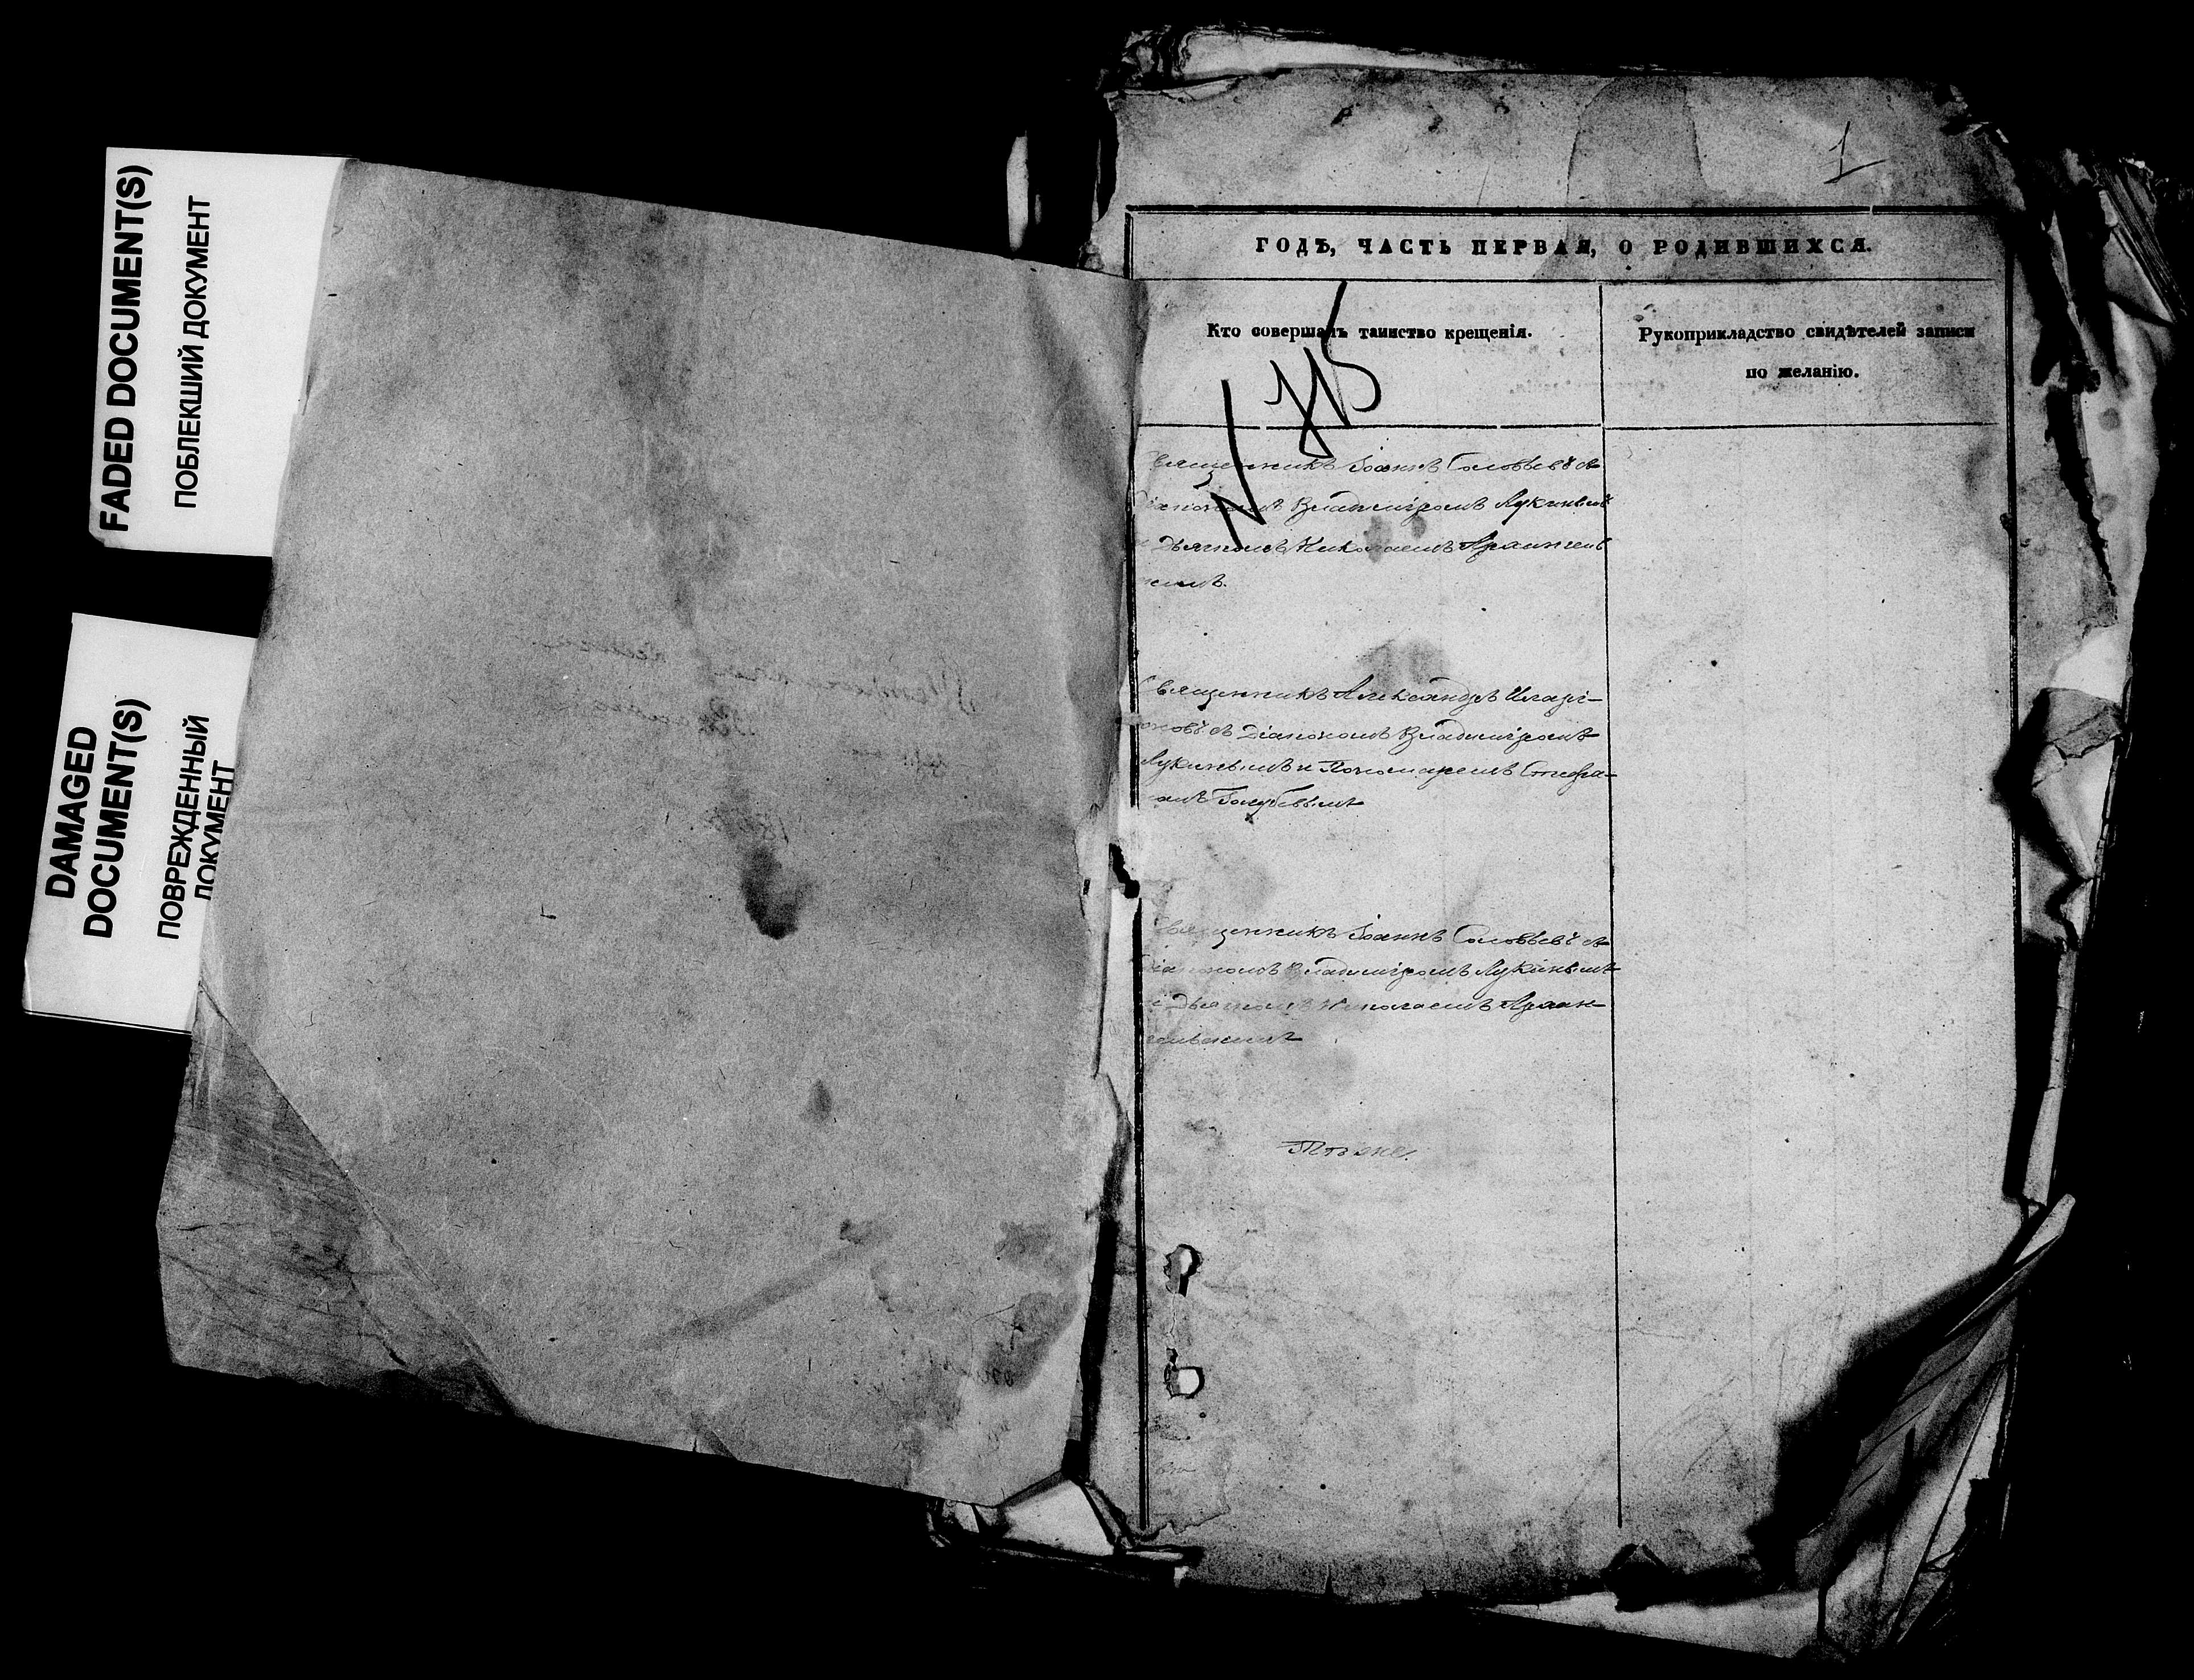 FADED DOCUMENT(S)
ПОБЛЕКШИЙ ДОКУМЕНТ
DAMAGED
DOCUMENT(S)
ПОВРЕЖДЕННЫЙ
ДОКУМЕНТ
1
ГОДѢ, ЧАСТЬ ПЕРВАЯ, О РОДИВШИХСЯ.
Кто совершалъ таинство крещенія.
Рукоприкладство свидѣтелей записи
по желанію.
Священникъ Іоаннъ Соловьевъ съ
Діакономъ Владиміромъ Лукинымъ
и Дьячкомъ Николаемъ Архангель
скимъ.
Священникъ Александръ Иларі-
оновъ съ Діакономъ Владиміромъ
Лукинымъ и Пономаремъ Стефа-
номъ Голубевымъ
Священникъ Іоаннъ Соловьевъ съ
Діакономъ Владиміромъ Лукинымъ
и Дьячкомъ Николаемъ Архан-
гельскимъ
Тѣ же.